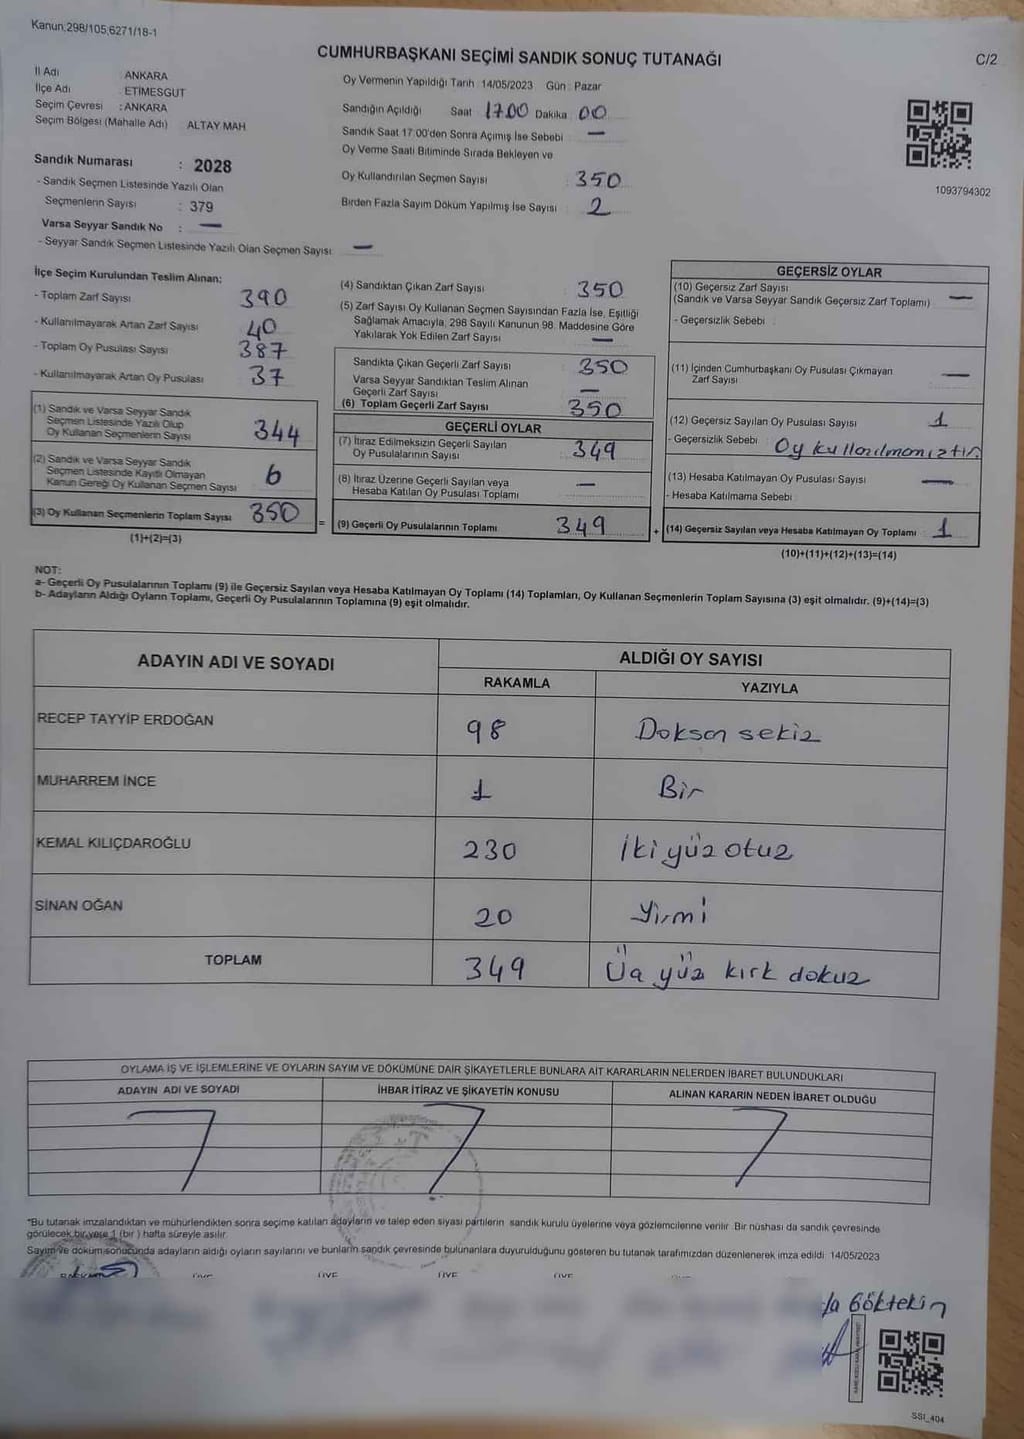 Kanun,298/105,6271/18-1
CUMHURBAŞKANI SEÇİMİ SANDIK SONUÇ TUTANAĞI
C/2
İl Adı ANKARA
İlçe Adı : ETİMESGUT
Seçim Çevresi : ANKARA
Seçim Bölgesi (Mahalle Adı) ALTAY MAH
Oy Vermenin Yapıldığı Tarih 14/05/2023 Gün : Pazar
Sandığın Açıldığı Saat 17.00 Dakika 00
Sandık Saat 17.00'den Sonra Açımış İse Sebebi —
Oy Verme Saati Bitiminde Sırada Bekleyen ve
Oy Kullandırılan Seçmen Sayısı : 350
Birden Fazla Sayım Döküm Yapılmış İse Sayısı 2
1093794302
Sandık Numarası : 2028
- Sandık Seçmen Listesinde Yazılı Olan
Seçmenlerin Sayısı : 379
Varsa Seyyar Sandık No : —
- Seyyar Sandık Seçmen Listesinde Yazılı Olan Seçmen Sayısı —
İlçe Seçim Kurulundan Teslim Alınan:
- Toplam Zarf Sayısı 390
- Kullanılmayarak Artan Zarf Sayısı 40
- Toplam Oy Pusulası Sayısı 387
- Kullanılmayarak Artan Oy Pusulası 37
(1) Sandık ve Varsa Seyyar Sandık
Seçmen Listesinde Yazılı Olup
Oy Kullanan Seçmenlerin Sayısı 344
(2) Sandık ve Varsa Seyyar Sandık
Seçmen Listesinde Kayıtlı Olmayan
Kanun Gereği Oy Kullanan Seçmen Sayısı 6
(3) Oy Kullanan Seçmenlerin Toplam Sayısı 350
(1)+(2)=(3)
(4) Sandıktan Çıkan Zarf Sayısı 350
(5) Zarf Sayısı Oy Kullanan Seçmen Sayısından Fazla İse, Eşitliği
Sağlamak Amacıyla, 298 Sayılı Kanunun 98. Maddesine Göre
Yakılarak Yok Edilen Zarf Sayısı —
Sandıkta Çıkan Geçerli Zarf Sayısı 350
Varsa Seyyar Sandıktan Teslim Alınan
Geçerli Zarf Sayısı —
(6) Toplam Geçerli Zarf Sayısı 350
GEÇERLİ OYLAR
(7) İtiraz Edilmeksizin Geçerli Sayılan
Oy Pusulalarının Sayısı 349
(8) İtiraz Üzerine Geçerli Sayılan veya
Hesaba Katılan Oy Pusulası Toplamı —
= (9) Geçerli Oy Pusulalarının Toplamı 349 +
GEÇERSİZ OYLAR
(10) Geçersiz Zarf Sayısı
(Sandık ve Varsa Seyyar Sandık Geçersiz Zarf Toplamı) —
- Geçersizlik Sebebi :
(11) İçinden Cumhurbaşkanı Oy Pusulası Çıkmayan
Zarf Sayısı —
(12) Geçersiz Sayılan Oy Pusulası Sayısı 1
- Geçersizlik Sebebi : Oy kullanılmamıştır
(13) Hesaba Katılmayan Oy Pusulası Sayısı —
- Hesaba Katılmama Sebebi
(14) Geçersiz Sayılan veya Hesaba Katılmayan Oy Toplamı 1
(10)+(11)+(12)+(13)=(14)
NOT:
a- Geçerli Oy Pusulalarının Toplamı (9) ile Geçersiz Sayılan veya Hesaba Katılmayan Oy Toplamı (14) Toplamları, Oy Kullanan Seçmenlerin Toplam Sayısına (3) eşit olmalıdır. (9)+(14)=(3)
b- Adayların Aldığı Oyların Toplamı, Geçerli Oy Pusulalarının Toplamına (9) eşit olmalıdır.
ADAYIN ADI VE SOYADI
ALDIĞI OY SAYISI
RAKAMLA YAZIYLA
RECEP TAYYİP ERDOĞAN 98 Doksan sekiz
MUHARREM İNCE 1 Bir
KEMAL KILIÇDAROĞLU 230 İki yüz otuz
SİNAN OĞAN 20 Yirmi
TOPLAM 349 Üç yüz kırk dokuz
OYLAMA İŞ VE İŞLEMLERİNE VE OYLARIN SAYIM VE DÖKÜMÜNE DAİR ŞİKAYETLERLE BUNLARA AİT KARARLARIN NELERDEN İBARET BULUNDUKLARI
ADAYIN ADI VE SOYADI İHBAR İTİRAZ VE ŞİKAYETİN KONUSU ALINAN KARARIN NEDEN İBARET OLDUĞU
*Bu tutanak imzalandıktan ve mühürlendikten sonra seçime katılan adayların ve talep eden siyasi partilerin sandık kurulu üyelerine veya gözlemcilerine verilir. Bir nüshası da sandık çevresinde
görülecek bir yere 1 (bir) hafta süreyle asılır.
Sayım ve döküm sonucunda adayların aldığı oyların sayılarını ve bunların sandık çevresinde bulunanlara duyurulduğunu gösteren bu tutanak tarafımızdan düzenlenerek imza edildi. 14/05/2023
Göktekin
SSI_404